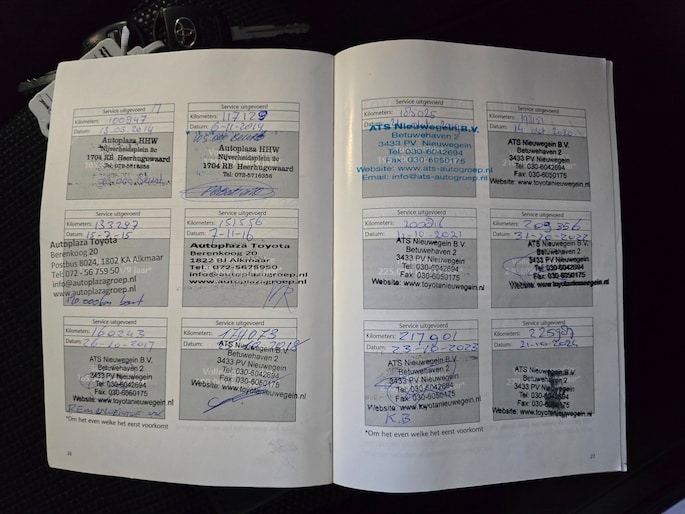 Service uitgevoerd
Kilometers: 100947
Datum: 13-03-2014
Autoplaza HHW
Nijverheidsplein 2c
1704 RB Heerhugowaard
Tel: 072-5718356
Service uitgevoerd
Kilometers: 117129
Datum: 6-11-2014
Autoplaza HHW
Nijverheidsplein 2c
1704 RB Heerhugowaard
Tel: 072-5718356
Service uitgevoerd
Kilometers: 133297
Datum: 15-7-15
Autoplaza Toyota
Berenkoog 20
Postbus 8024, 1802 KA Alkmaar
Tel.: 072-56 759 50
info@autoplazagroep.nl
www.autoplazagroep.nl
Service uitgevoerd
Kilometers: 151556
Datum: 7-11-16
Autoplaza Toyota
Berenkoog 20
1822 BJ Alkmaar
Tel.: 072-5675950
info@autoplazagroep.nl
www.autoplazagroep.nl
Service uitgevoerd
Kilometers: 160243
Datum: 26-10-2017
ATS Nieuwegein B.V.
Betuwehaven 2
3433 PV Nieuwegein
Tel: 030-6042694
Fax: 030-6050175
Website: www.toyotanieuwegein.nl
Service uitgevoerd
Kilometers: 174073
Datum:
ATS Nieuwegein B.V.
Betuwehaven 2
3433 PV Nieuwegein
Tel: 030-6042694
Fax: 030-6050175
Website: www.toyotanieuwegein.nl
*Om het even welke het eerst voorkomt
26
Service uitgevoerd
Kilometers:
Datum:
ATS Nieuwegein B.V.
Betuwehaven 2
3433 PV Nieuwegein
Tel.: 030-6042694
Fax.: 030-6050175
Website: www.ats-autogroep.nl
Email: info@ats-autogroep.nl
Service uitgevoerd
Kilometers:
Datum:
ATS Nieuwegein B.V.
Betuwehaven 2
3433 PV Nieuwegein
Tel: 030-6042694
Fax: 030-6050175
Website: www.toyotanieuwegein.nl
Service uitgevoerd
Kilometers:
Datum: 11-10-2021
ATS Nieuwegein B.V.
Betuwehaven 2
3433 PV Nieuwegein
Tel: 030-6042694
Fax: 030-6050175
Website: www.toyotanieuwegein.nl
Service uitgevoerd
Kilometers: 209356
Datum: 31-10-2022
ATS Nieuwegein B.V.
Betuwehaven 2
3433 PV Nieuwegein
Tel: 030-6042694
Fax: 030-6050175
Website: www.toyotanieuwegein.nl
Service uitgevoerd
Kilometers: 217901
Datum: 23-10-2023
ATS Nieuwegein B.V.
Betuwehaven 2
3433 PV Nieuwegein
Tel: 030-6042694
Fax: 030-6050175
Website: www.toyotanieuwegein.nl
K.B
Service uitgevoerd
Kilometers:
Datum: 21-10-2024
ATS Nieuwegein B.V.
Betuwehaven 2
3433 PV Nieuwegein
Tel: 030-6042694
Fax: 030-6050175
Website: www.toyotanieuwegein.nl
*Om het even welke het eerst voorkomt
27